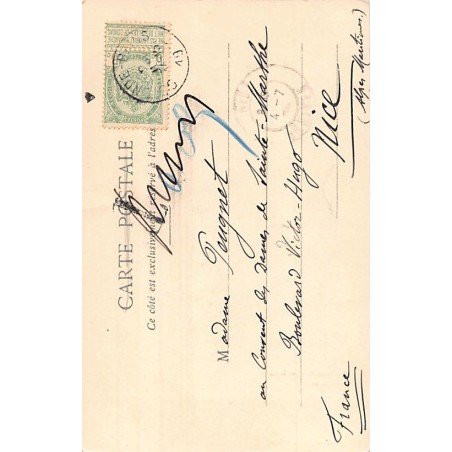 CARTE POSTALE
Ce côté est exclusivement réservé à l'adresse
Madame Pugnet
au Couvent des Dames de Sainte-Marthe
Boulevard Victor-Hugo
Nice
(Alpes Maritimes)
France